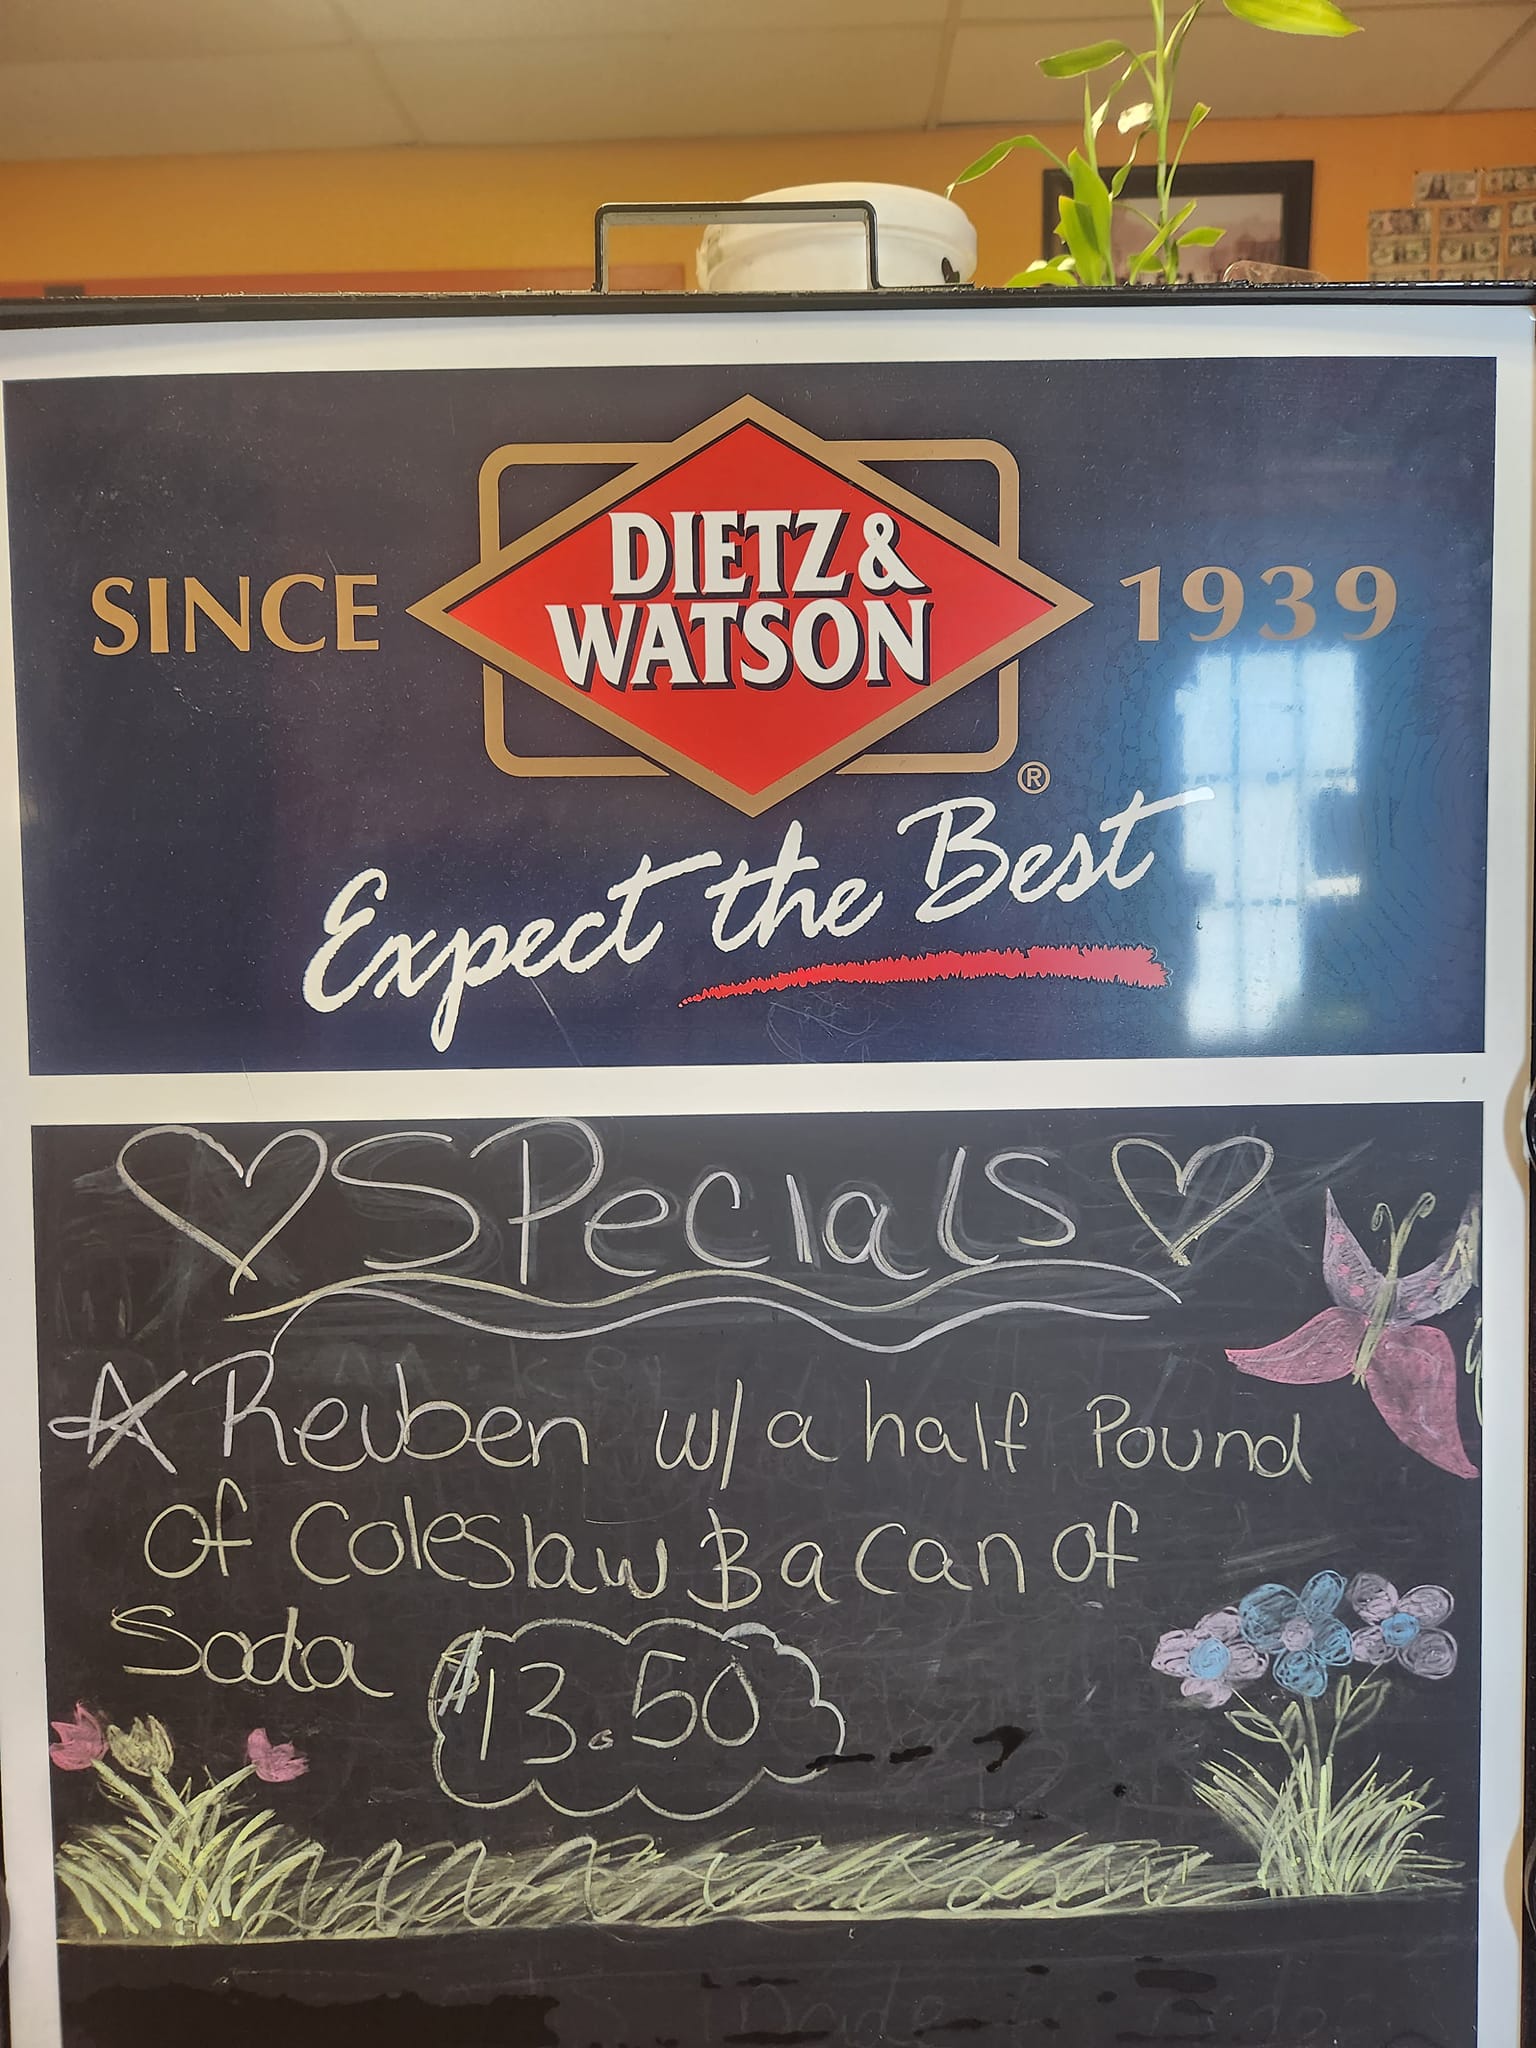 SINCE
DIETZ &
WATSON
1939
®
Expect the Best
SPecials
Reuben w/a half Pound
of Coleslaw & a Can of
Soda
$13.50